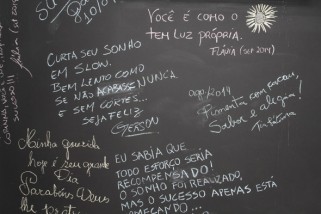 VOCÊ É COMO O
TEM LUZ PRÓPRIA.
FLÁVIA (SET 2019)
CURTA SEU SONHO
EM SLOW.
BEM LENTO COMO
SE NÃO ACABASSE NUNCA.
E SEM CORTES...
SEJA FELIZ
GERSON
AGO/2019
Pimenta com
Sabor e alegria!
Minha querida
hoje é seu grande
Dia
Parabéns Deus
EU SABIA QUE
TODO ESFORÇO SERIA
RECOMPENSADO!
O SONHO FOI REALIZADO,
MAS O SUCESSO APENAS ESTÁ
COMEÇANDO...